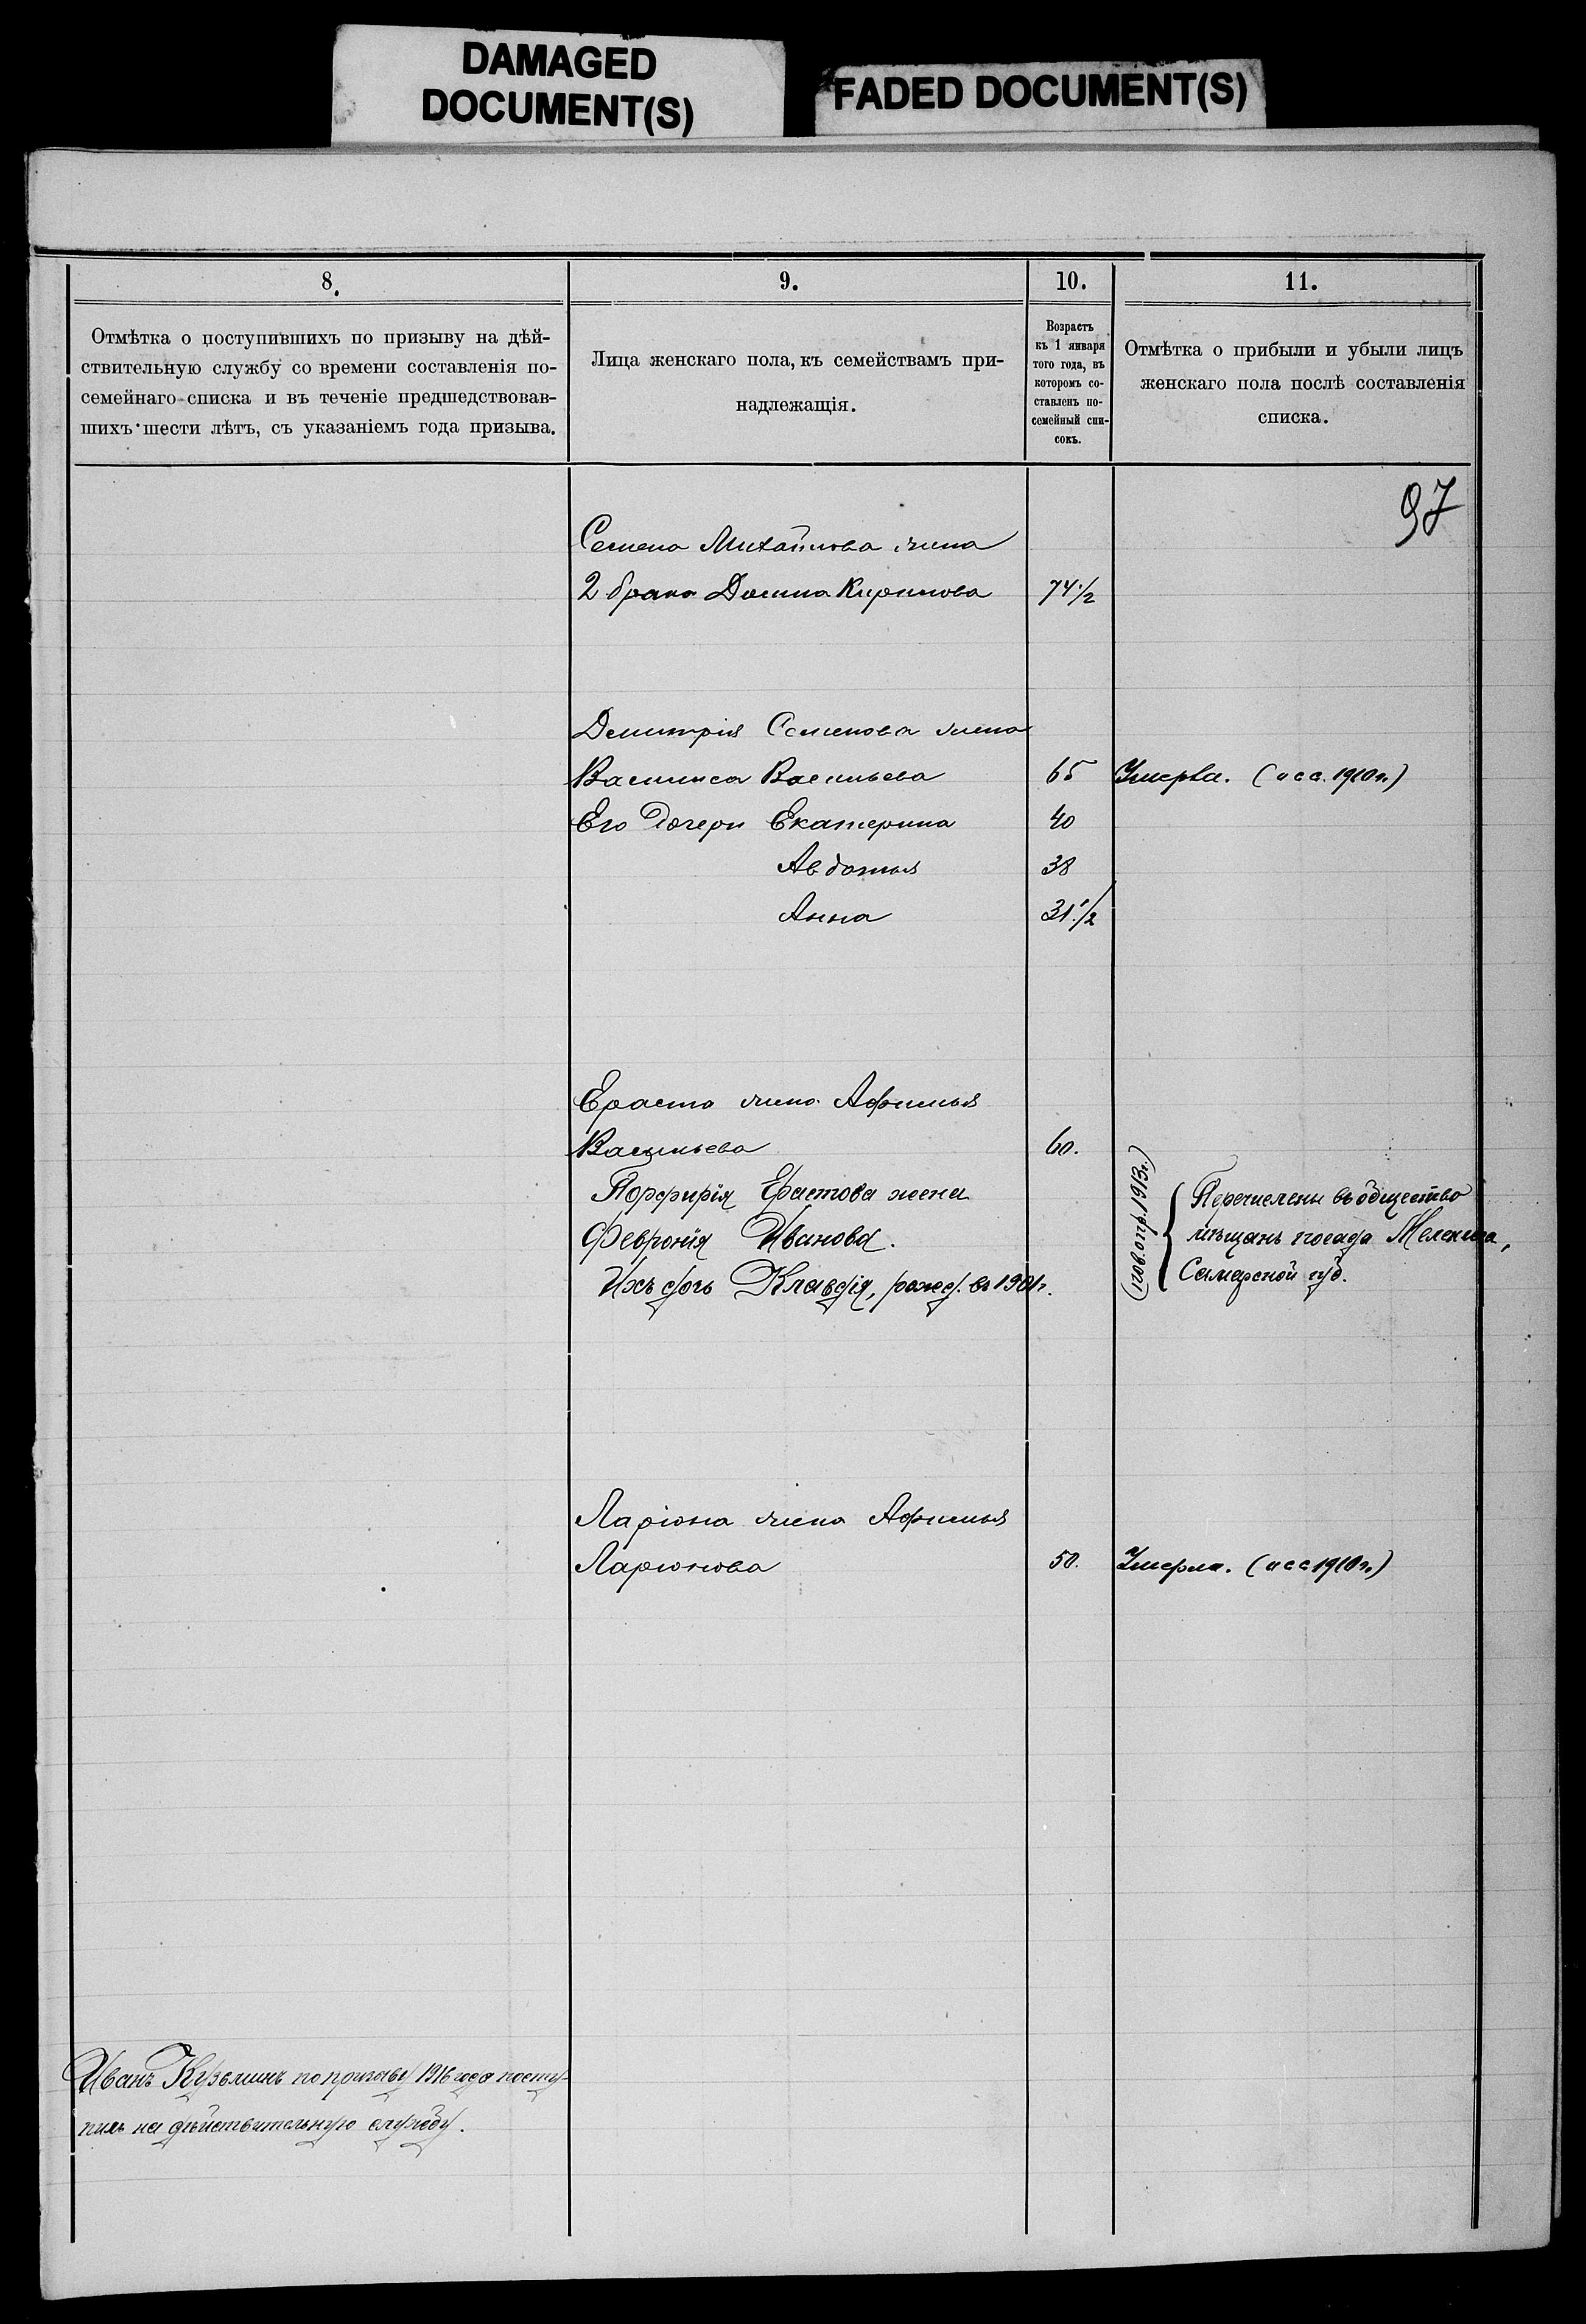 DAMAGED
DOCUMENT(S)
FADED DOCUMENT(S)
8.
9.
10.
11.
Отмѣтка о поступившихъ по призыву на дѣй-
ствительную службу со времени составленія по-
семейнаго списка и въ теченіе предшедствовав-
шихъ шести лѣтъ, съ указаніемъ года призыва.
Лица женскаго пола, къ семействамъ при-
надлежащія.
Возрастъ
къ 1 января
того года, въ
которомъ со-
ставленъ по-
семейный спи-
сокъ.
Отмѣтка о прибыли и убыли лицъ
женскаго пола послѣ составленія
списка.
97
Семена Михайлова жена
2 брака Домна Кирилова 74 1/2
Демитрія Семенова жена
Василиса Васильева 65 Умерла. (исс. 1910 г.)
Его дочери Екатерина 40
Авдотья 38
Анна 31 1/2
Ераста жена Афимья
Васильева 60.
Порфирія Ерастова жена
Феврониія Иванова.
Ихъ дочь Клавдія, рожд. въ 1901 г.
(гов. опр. 1913 г.)
Перечислены въ общество
мѣщанъ посада Мелекеса,
Самарской губ.
Ларіона жена Афимья
Ларионова 50. Умерла. (исс 1910 г.)
Иванъ Кузьминъ по призыву 1916 года посту-
пилъ на дѣйствительную службу.